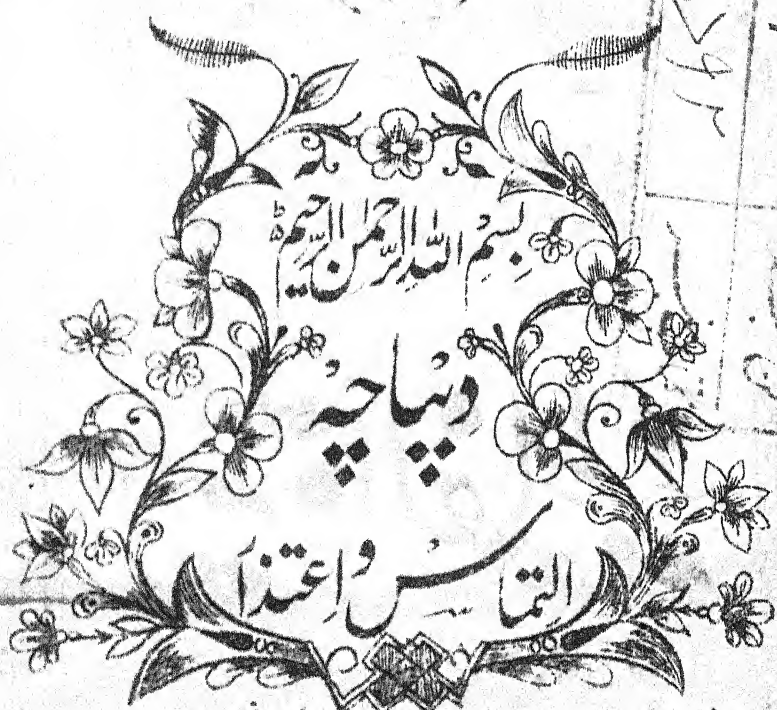 بِسْمِ اللهِ الرَّحْمٰنِ الرَّحِيْمِ
دیباچہ
التماس و اِعتذار